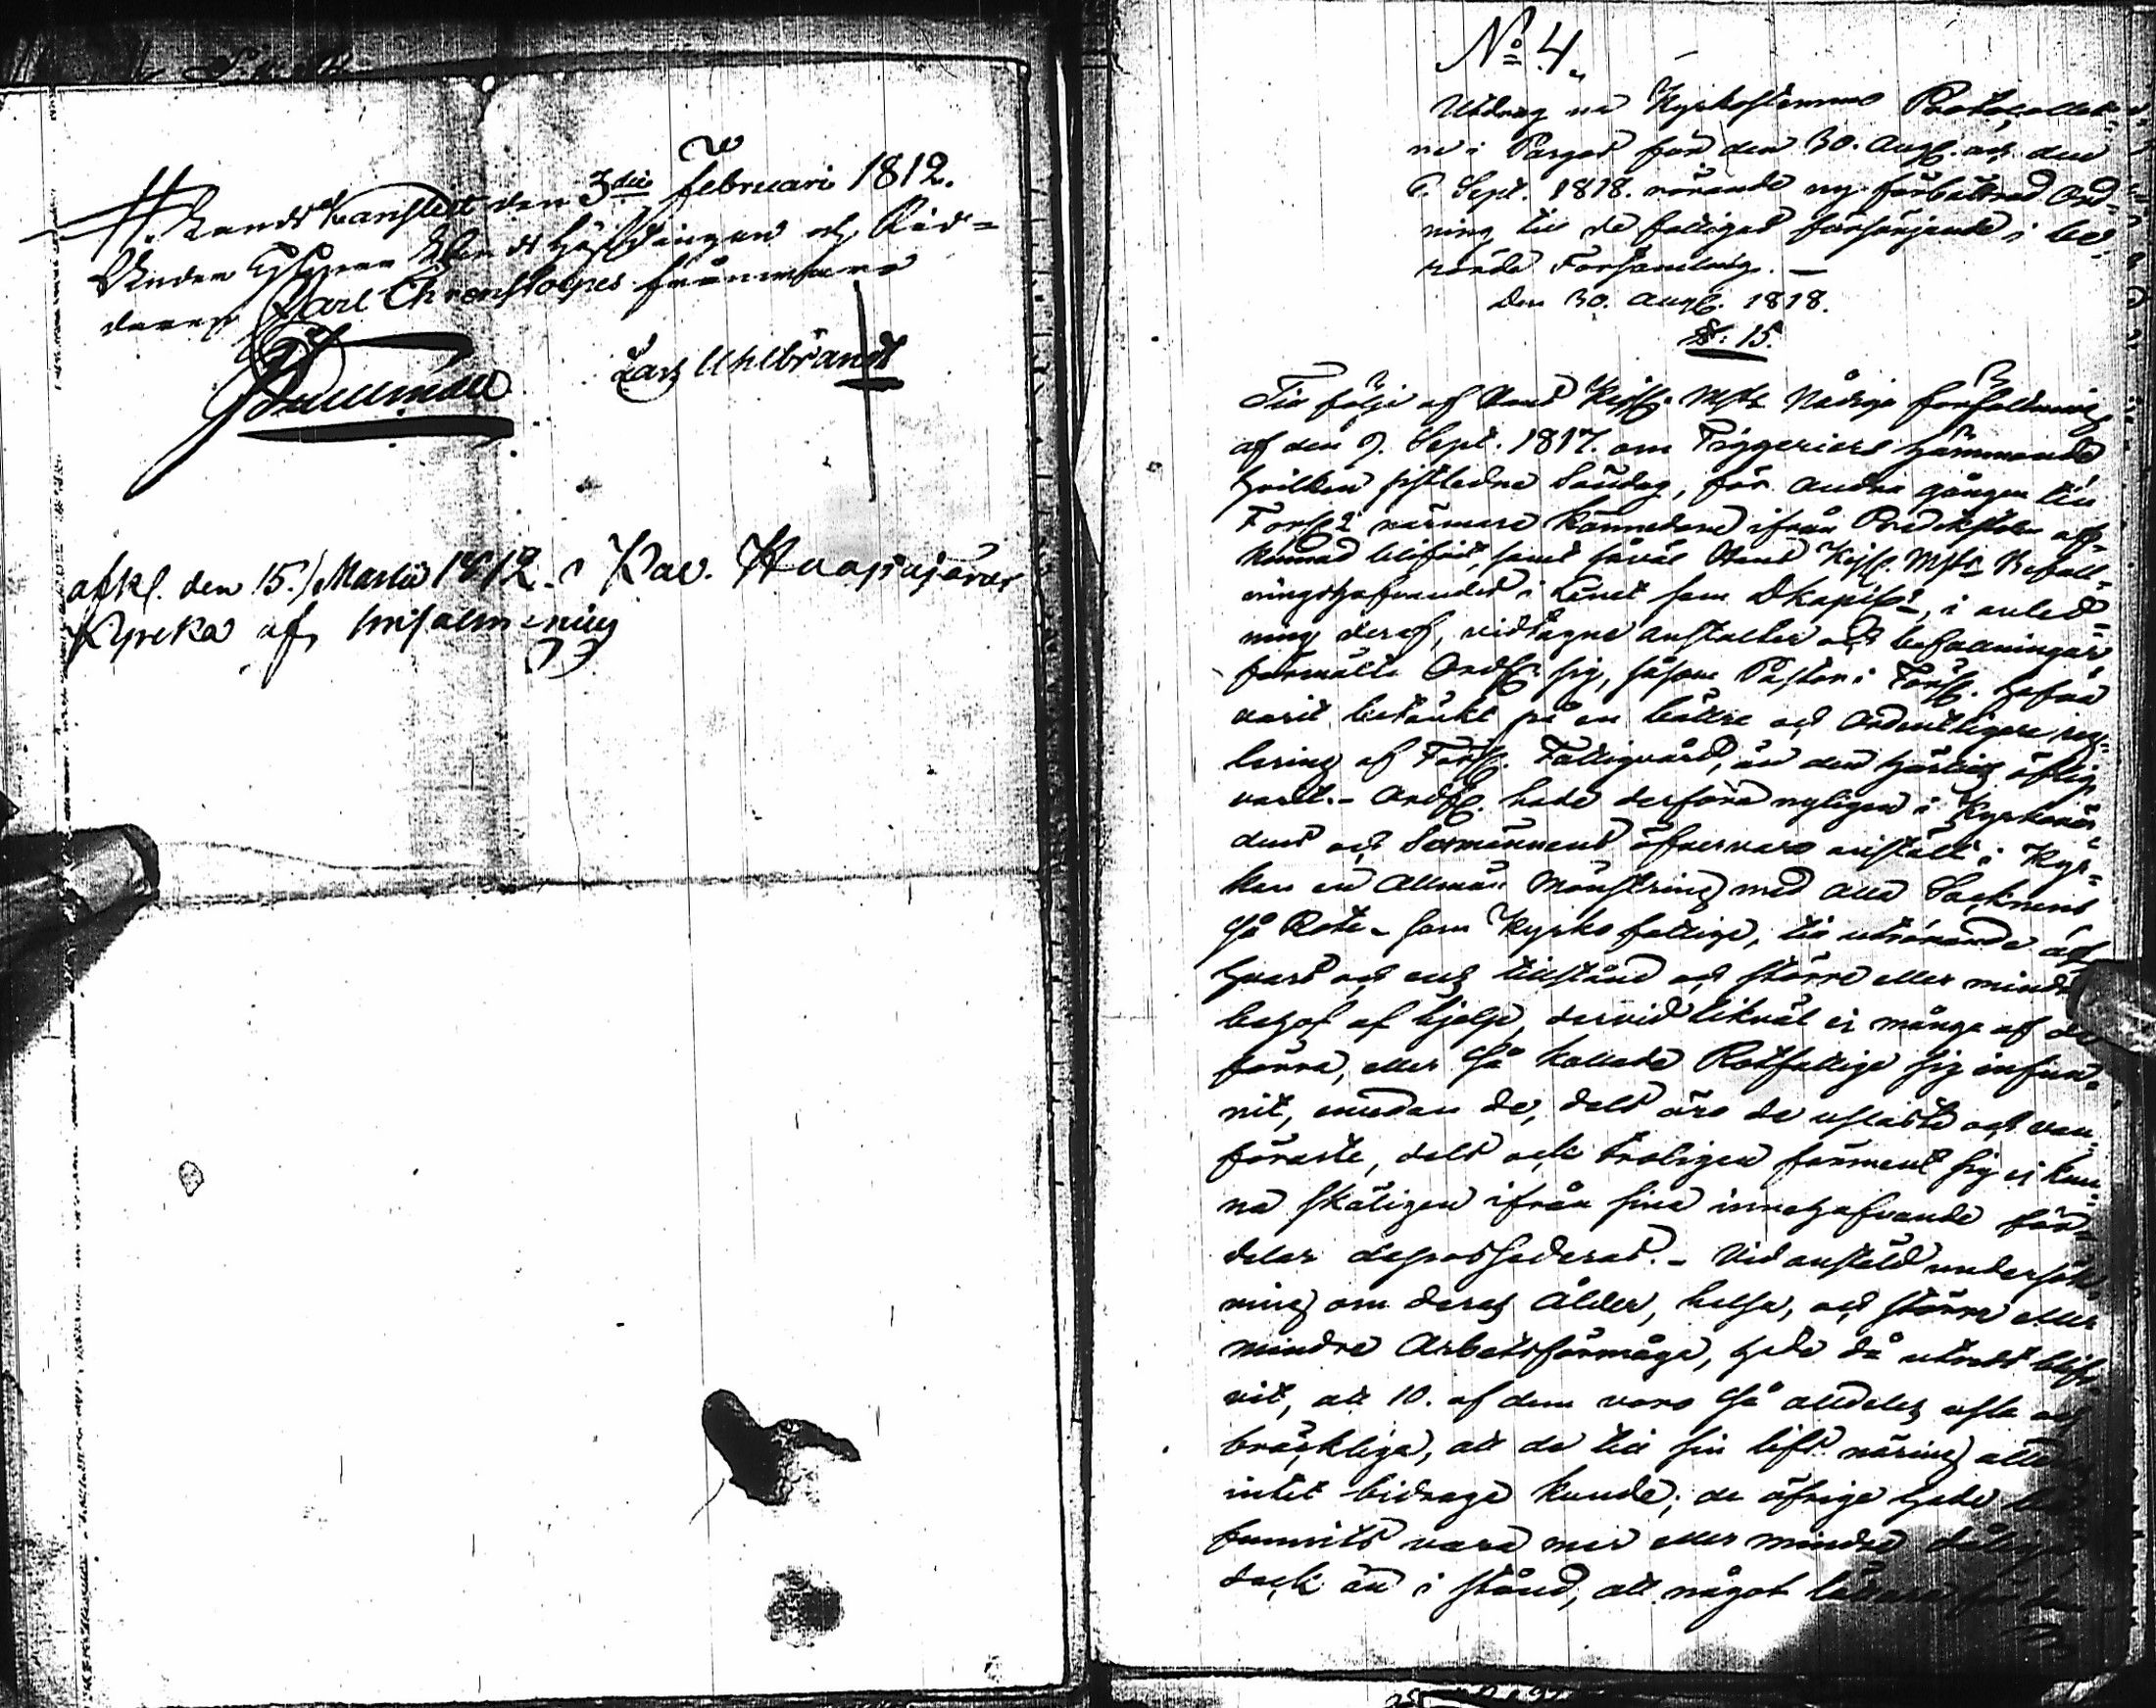 Lands Cansliet den 3die Februari 1812.
Under Herr Lands Höfdingens och Rid=
darens Carl Ehrenstolpes frånvaro
Lars Uhlbrandt
afkl. den 15. Martii 1812. i
Kyrka af
No 4.
Utdrag ur Kyrkostämmo Protocoller=
ne i Pargas för den 30. Aug. och den
6. Sept. 1818. rörande ny förbättrad Ord=
ning til de fattigas försörjande i be=
rörde Församling. —
Den 30. Aug. 1818.
§. 15.
Till följe af Hans Kejs. Maj:ts Nådiga författning
af den 9. Sept. 1817. om Tiggeriers hämmande
hvilken sistledne Söndag, för andra gången till
Förs:s närmare kännedom ifrån Predikstolen af=
kunnad blifvit, samt såväl Hans Kejs. Maj:ts Befall=
ningshafvandes i Länet som DKapit:s, i anled=
ning deraf, vidtagne anstalter och befallningar
förmälte Ordf. sig, såsom Pastor i Förs. hafva
varit betänkt på en bättre och ordentligare reg=
lering af Förs. Fattigvård, än den härtils öflig
varit. - Ordf. hade derföre nyligen i Kyrkovär=
dens och Sexmännens öfvervaro anstält i Kyr=
kan en allmän Mönstring med alla Socknens
så Rote- som Kyrko fattige, till utrönande af
hvars och ens tillstånd och större eller mindre
behof af hjelp, dervid likväl ej många af de
förra, eller så kallade Rotfattige sig infun=
nit, emedan de, dels äro de uslaste och van=
föraste, dels ock troligen förment sig ej kun=
na skäligen ifrån sina innehafvande för=
delar depossederas. - Vid anstäld undersök=
ning om deras ålder, helsa, och större eller
mindre Arbetsförmåga, hade då utredt blif=
vit, att 10. af dem voro så alldeles usla och
bräckliga, att de till sin lifs näring
intet bidraga kunde; de öfrige hade be=
funnits vara mer eller mindre
dock än i stånd, att något